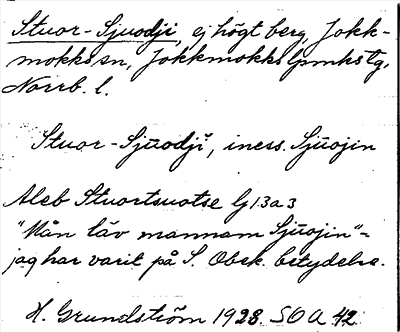 Stuor-Sjuodji, ej högt berg, Jokk-
mokks sn, Jokkmokks lpmks tg.
Norrb. l.
Stuor-Sjūodjī, iness. Sjūojin
Aleb Stuortsuotse lj 13a3
"Mån läv mannam Sjūojin" =
jag har varit på S. Obek. betydelse.
H. Grundström 1928. SOA 42